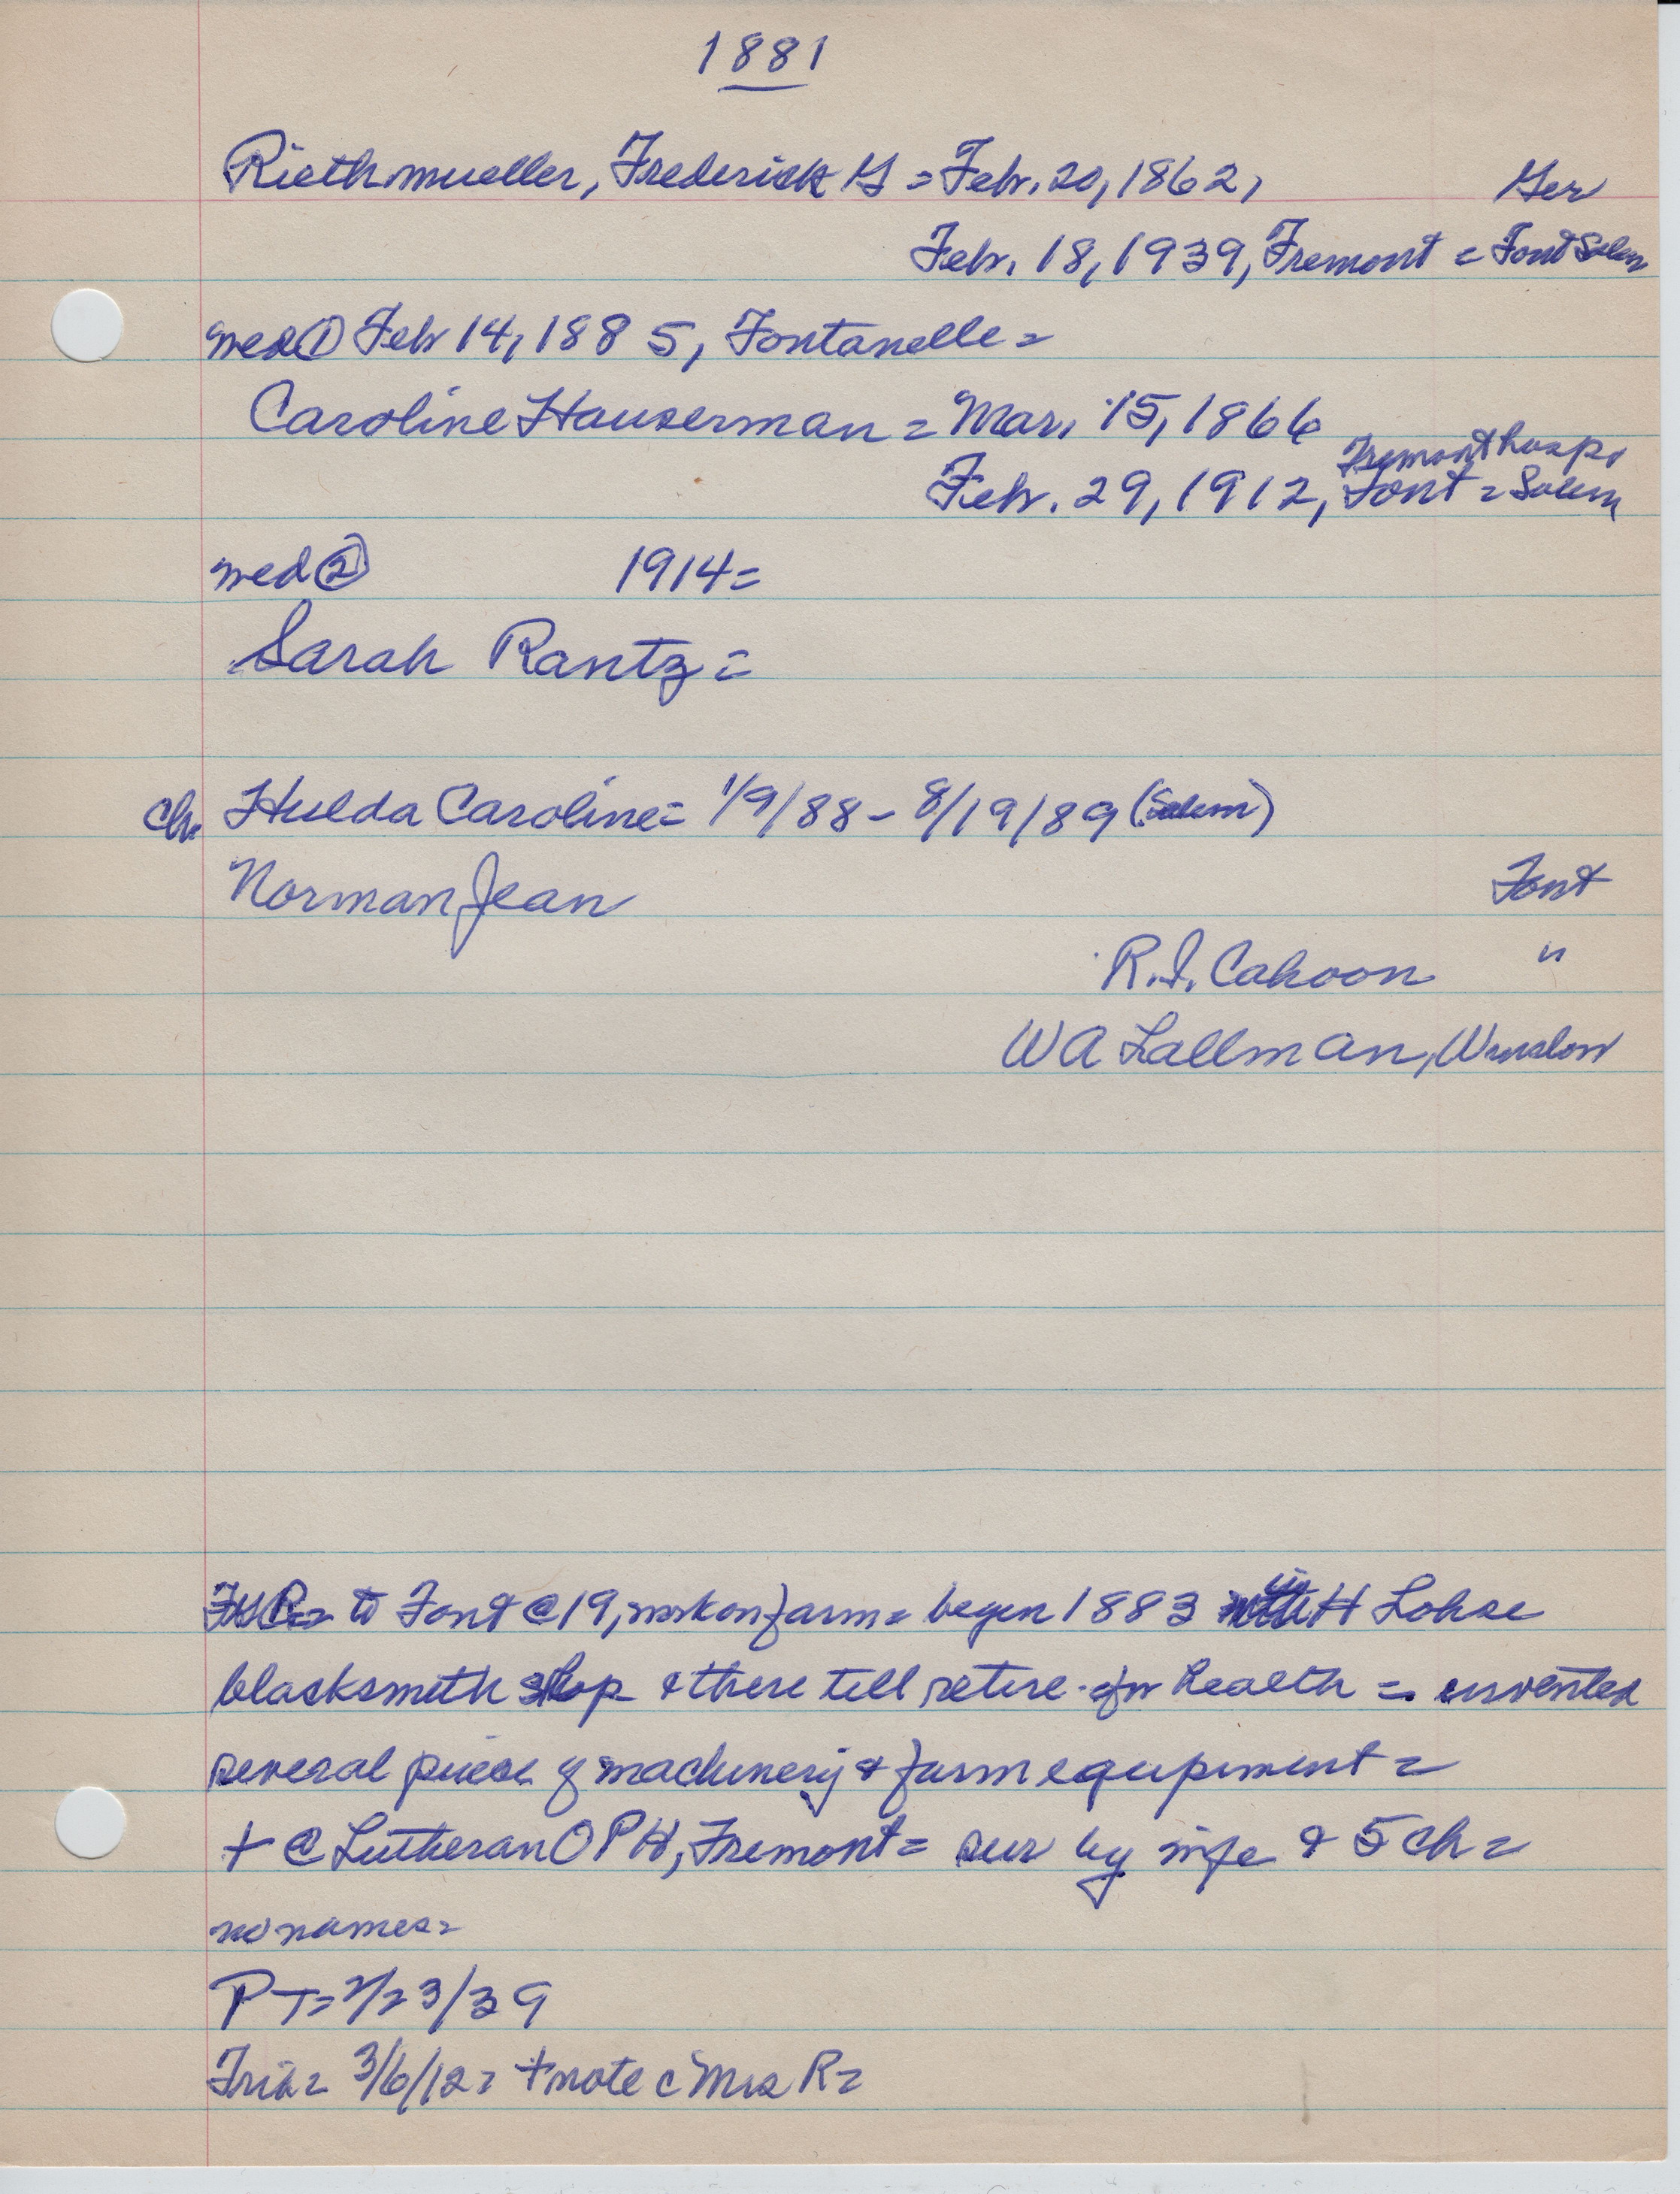 1881
Riethmueller, Frederick G = Febr. 20, 1862, Ger
Febr. 18, 1939, Fremont = Font Salem
med ① Feb 14, 1885, Fontanelle =
Caroline Hauserman = Mar. 15, 1866
Fremont hosp.
Febr. 29, 1912, Font = Salem
med ② 1914 =
Sarah Rantz =
ch. Hulda Caroline = 1/9/88 - 8/19/89 (Salem)
Norman Jean Font
R.I. Cahoon "
WA Lallman, Winslow
FGR = to Font @ 19, work on farm = begin 1883 in H Lohse
blacksmith shop & there till retire for health = invented
several piece of machinery & farm equipment =
+ @ Lutheran OPH, Fremont = sur by wife & 5 ch =
no names =
PT = 2/23/39
Trib = 3/6/12 = + note c Mrs R =